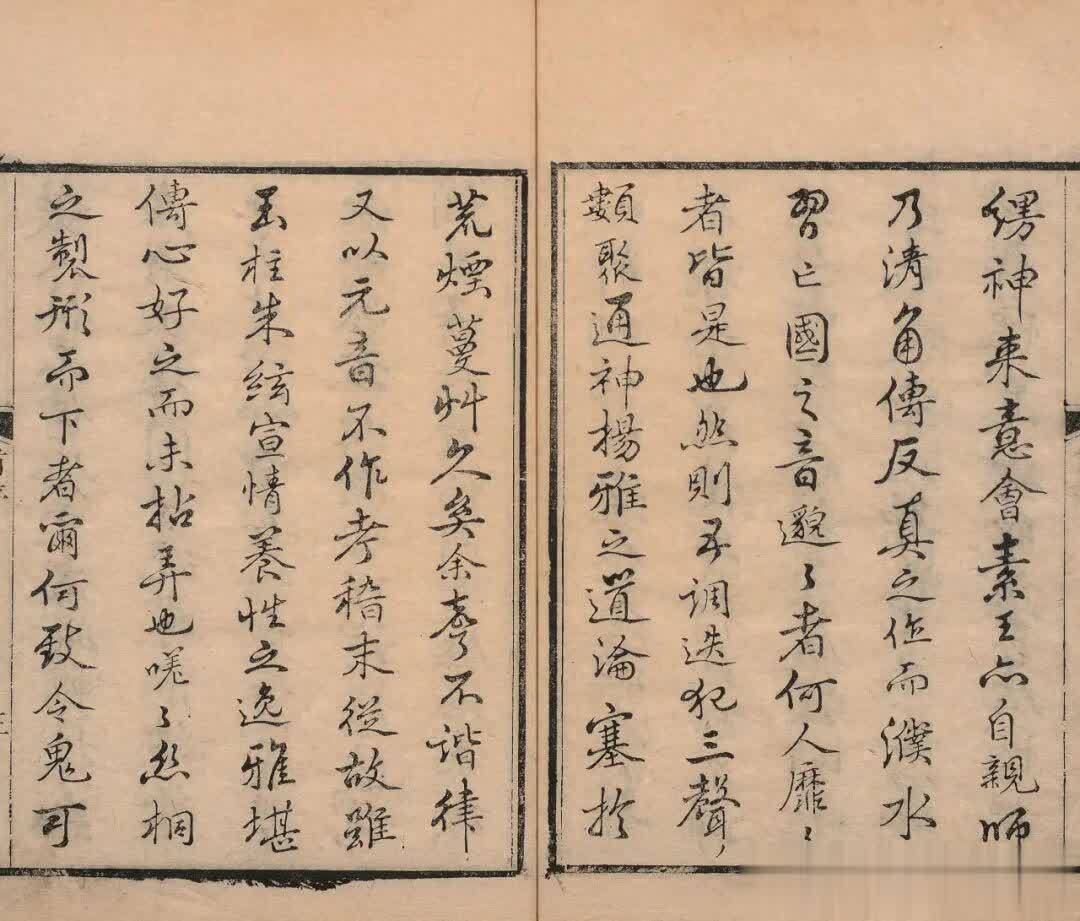 繆神来意會素王亦自親師
乃清角傳反真之作而濮水
習亡國之音邈々者何人靡々
者皆是也然則五調迭犯三聲
類聚通神揚雅之道淪塞於
荒煙蔓艸久矣余耆不諧律
又以元音不作考稽末從故雖
玉柱朱絃宣情養性之逸雅堪
傳心好之而未拈弄也嗟々絲桐
之製形而下者爾何致令鬼可